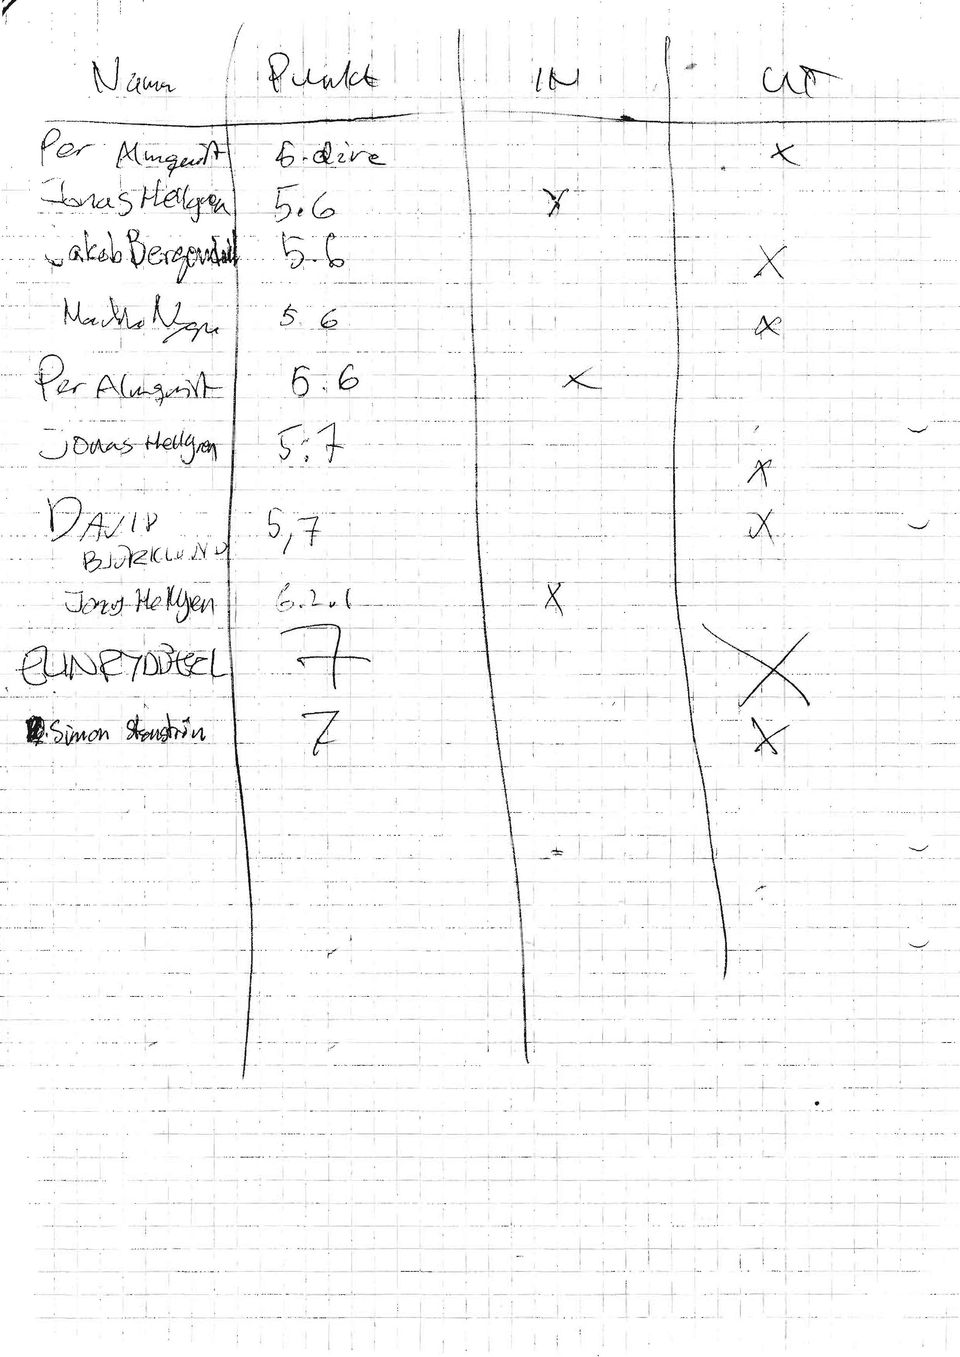 Namn Punkt IN UT
Per Almquist 5. dire X
Jonas Hellgren 5.6 X
Jakob Bergendahl 5.6 X
5.6 X
Per Almquist 5.6 X
Jonas Hellgren 5:7 X
DAVID 5,7 X
BJÖRKLUND
Jonas Hellgren 6.2.1 X
ELIN RYDDEGEL 7 X
Simon Stenström 7 X